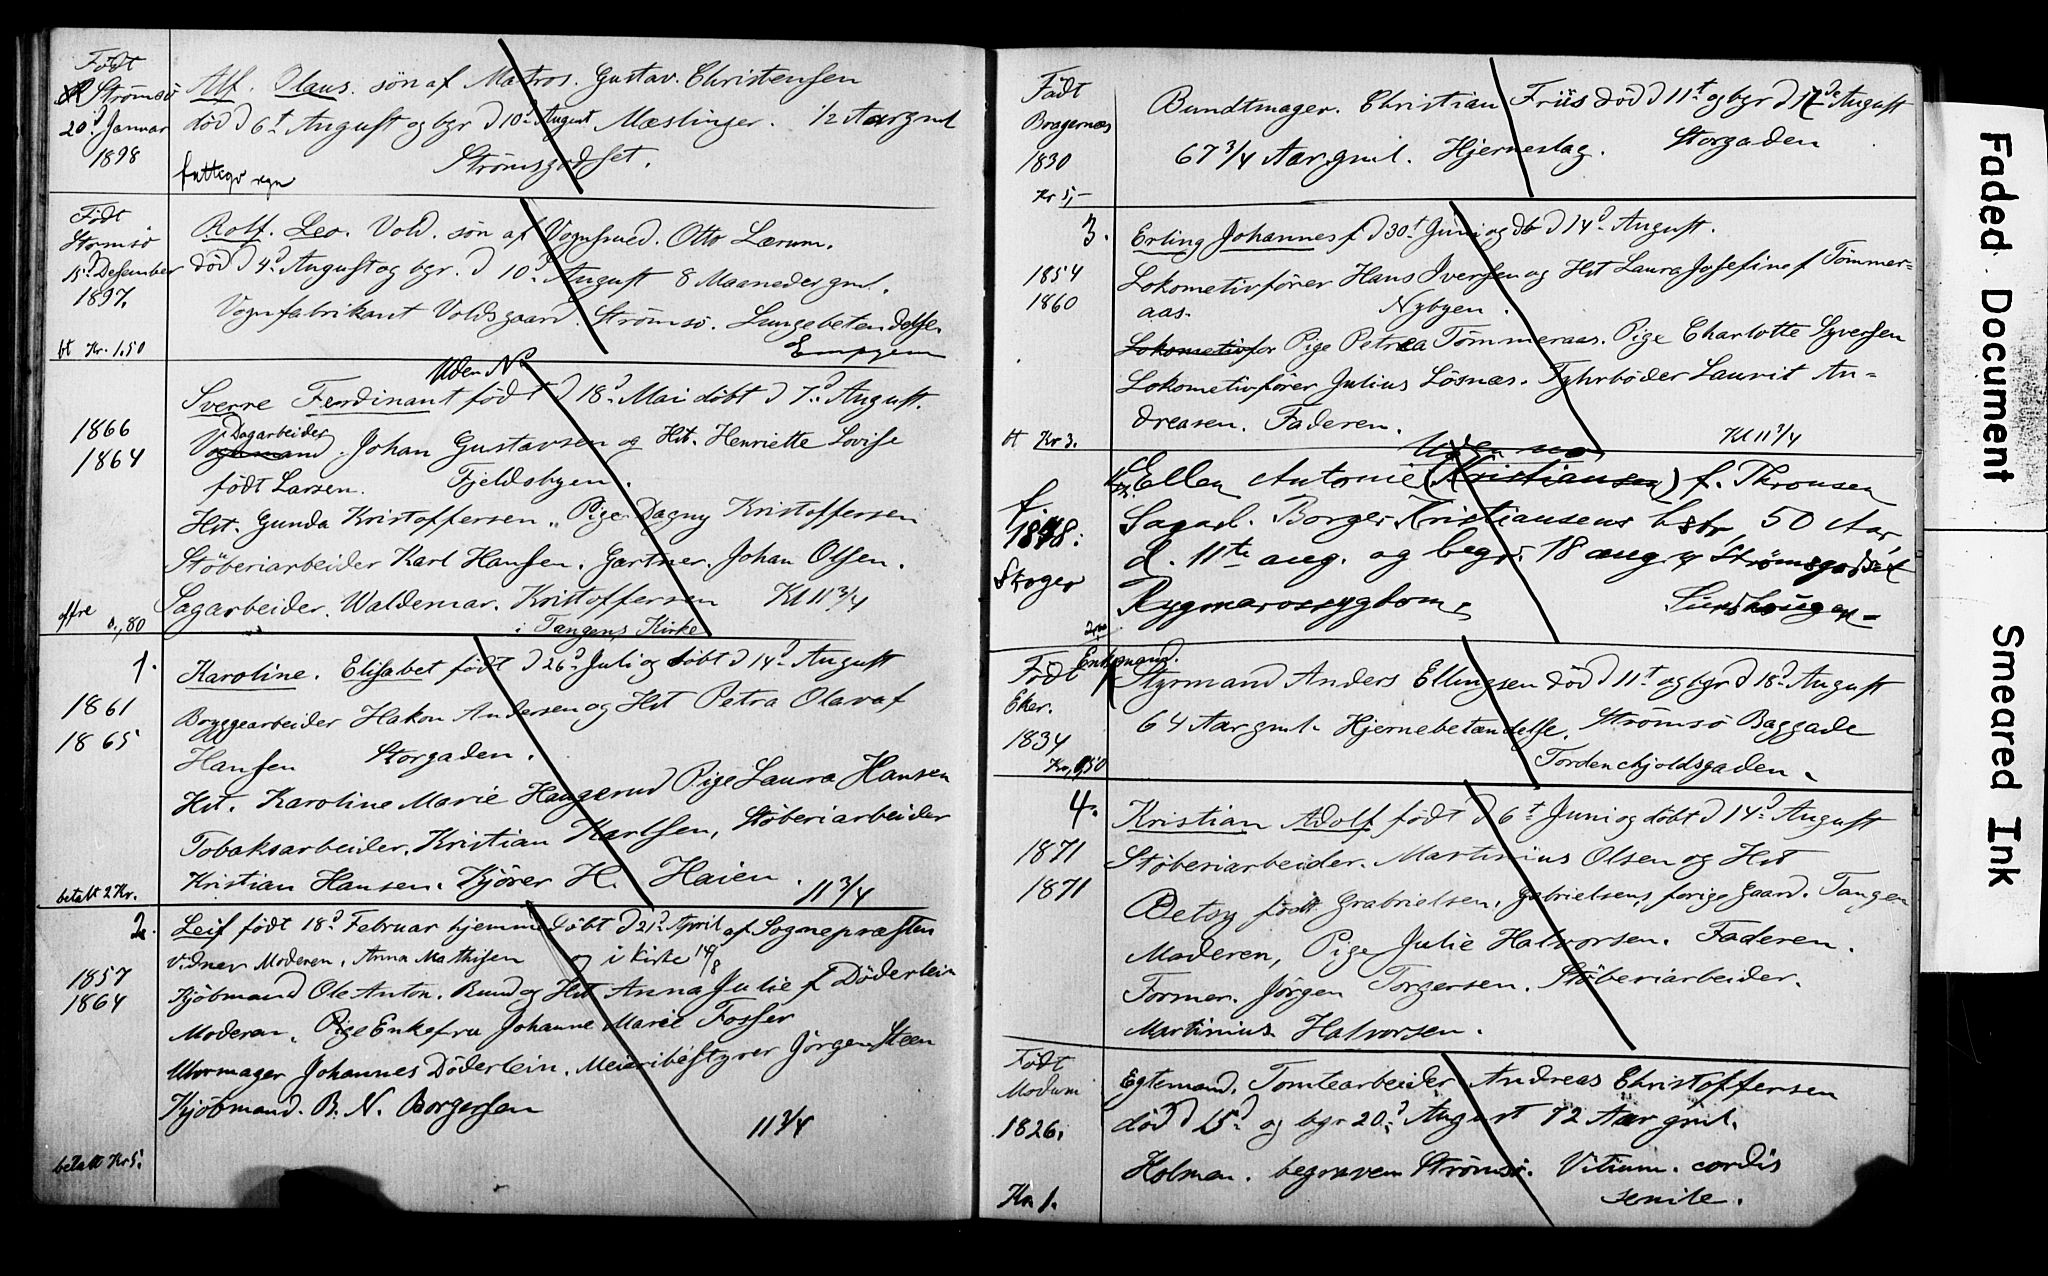 Født
Strømsø
20d. Januar
1898
Alf. Olaus. søn af Matros. Gustav. Christensen
død d 6t August og bgr d 10d August Mæslinger. 1/2 Aar gml
Strømsgodset.
Født
Strømsø
15d. Desember
1897.
bt Kr. 1.50
Rolf. Leo. Vold. søn af Vognsmed. Otto Lærum.
død d 4d August og bgr. d 10d August 8 Maaneder gml.
Vognfabrikant Voldsgaard. Strømsø. Lungebetendelse
Empyem
Uden No
1866
1864
offre 0,80
Sverre Ferdinant født d 18d Mai døbt d 7d August.
Dagarbeider
Vognmand. Johan Gustavsen og Hst. Henriette Lovise
født Larsen. Fjeldsbyen.
Hst. Gunda Kristoffersen. Pige Dagny Kristoffersen
Støberiarbeider Karl Hansen. Gartner. Johan Olsen.
Sagarbeider. Waldemar. Kristoffersen Kl 11 3/4
i Tangens Kirke
1.
1861
1865
betalt 2 Kr.
Karoline. Elisabet født d 26d Juli og døbt d 14d August
Bryggearbeider Hakon Andersen og Hst Petra Olava f
Hansen Storgaden.
Hst. Karoline Marie Haugerud Pige Laura Hansen
Tobaksarbeider. Kristian Karlsen, Støberiarbeider
Kristian Hansen. Kjører H. Haien. 11 3/4
2.
1857
1864
betalt Kr 5.
Leif født 18d Februar hjemmedøbt d 21d April af Sognepræsten
Vidner Moderen. Anna Mathisen og i Kirke 14/8
Kjøbmand Ole Anton. Rund og Hst Anna Julie f Døderlein
Moderen. Pige Enkefru Johanne Marie Fosser
Uhrmager Johannes Døderlein. Meieribestyrer Jørgen Steen
Kjøbmand. B. N. Borgersen
11 3/4
Født
Bragernæs
1830
Kr 5,-
Bundtmager. Christian Friis død d 11t og bgr d 17de August
67 3/4 Aar gml. Hjerneslag. Storgaden
3.
1854
1860
bt Kr 3.
Erling Johannes f d 30t Juni og db d 14d August.
Lokomotivfører Hans Iversen og Hst Laura Josefine f Tømmer=
aas. Nybyen.
Lokomotivfør Pige Petrea Tømmeraas. Pige Charlotte Syversen
Lokomotivfører Julius Løsnæs. Fyhrbøder Laurit An=
dreasen. Faderen. Kl 11 3/4
Uden no
f.
1848.
Skoger
Ellen Antonie (Kristiansen) f. Thronsen
Sagarb. Borger Kristiansens hstr, 50 Aar,
d. 11te aug. og begr. 18 aug. Strømsgodset
Rygmarvssygdom.
Født
Eker.
1834
Enkemand.
Styrmand Anders Ellingsen død d 11t og bgr d 18d August
64 Aar gml. Hjernebetændelse. Strømsø Baggade
Tordenskjoldsgaden.
4.
1871
1871
Kristian Adolf født d 6t Juni og døbt d 14d August
Støberiarbeider. Martinius Olsen og Hst
Betsy født Grabrielsen. Gabrielsens forige Gaard. Tangen
Moderen, Pige Julie Halvorsen. Faderen.
Former. Jörgen Torgersen. Støberiarbeider.
Martinius Halvorsen.
Født
Modum
1826.
Kr 1.
Egtemand. Tomtearbeider. Andreas Christoffersen
død d 15d og bgr 20d August 72 Aar gml.
Holmen. begraven Strømsø. Vitium. cordis
senile.
Faded Document
Smeared Ink